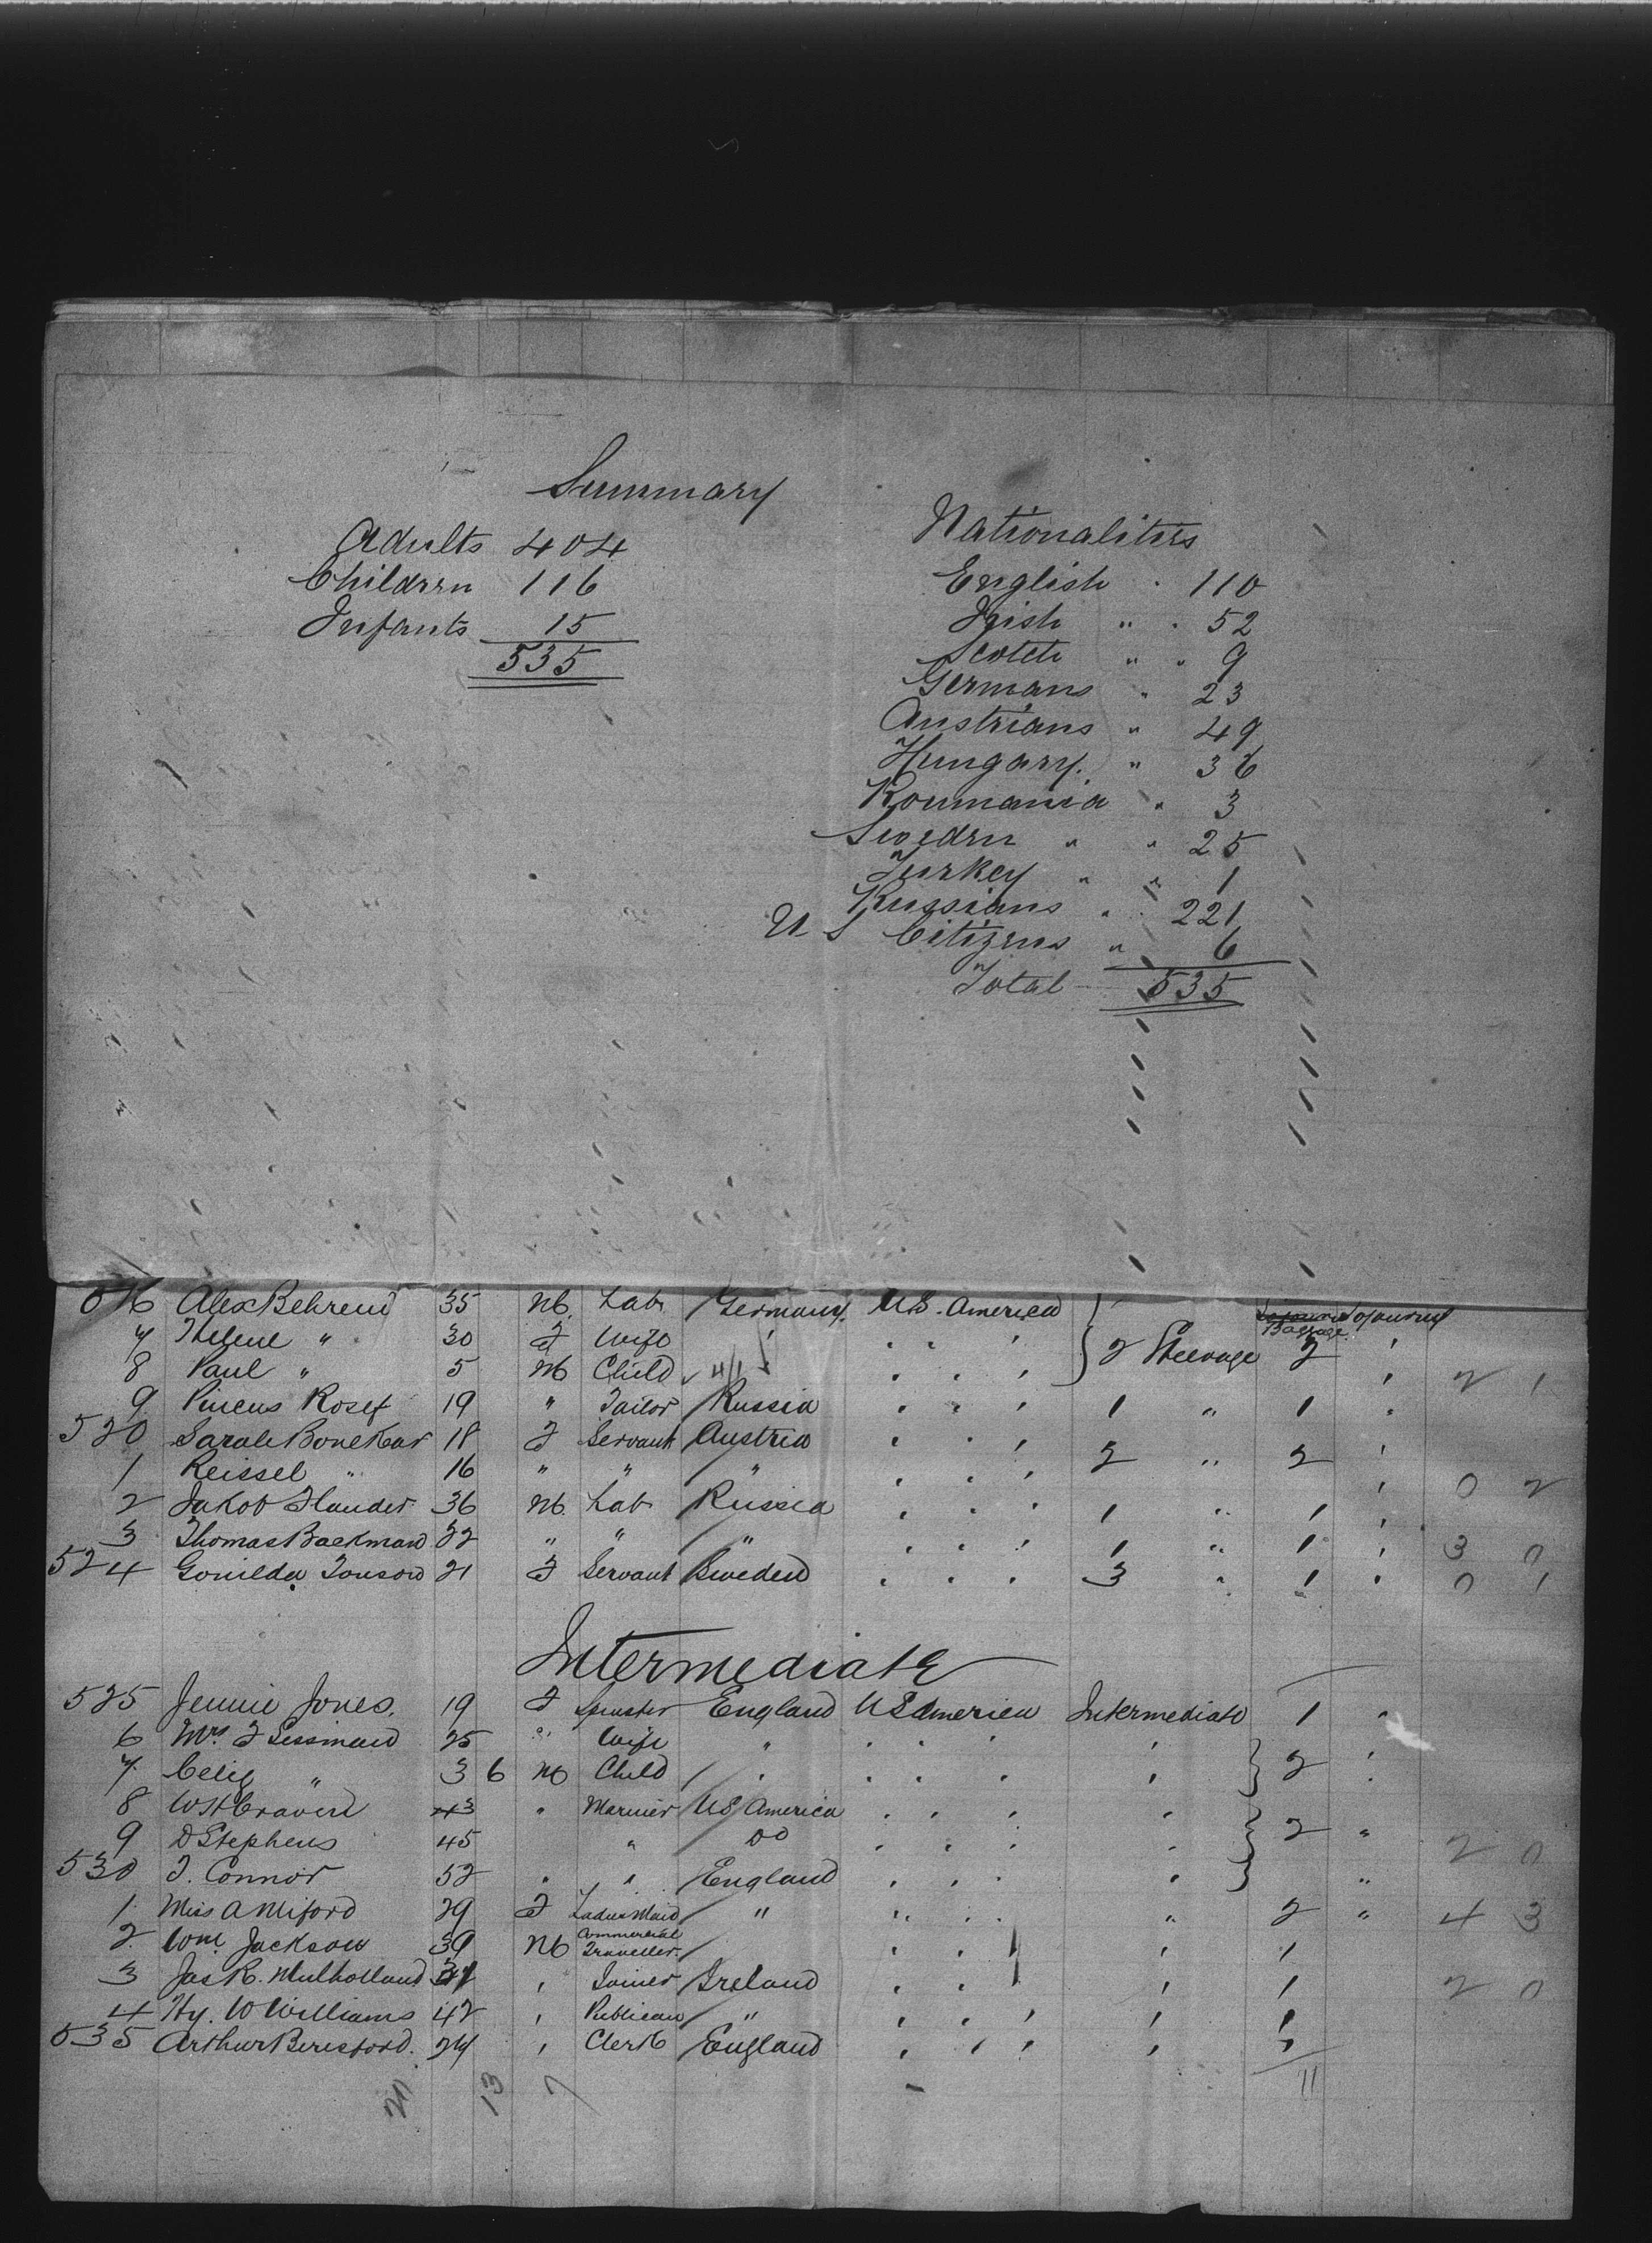 Summary
Adults 404
Children 116
Infants 15
535
Nationalities
English " 110
Irish " " 52
Scotch " " 9
Germans " 23
Austrians " 49
Hungary. " 36
Roumania " 3
Sweden " " 25
Turkey " " 1
Russians " 221
U S Citizens " 6
Total 535
Sojourning
Baggage
516 Alex Behrend 35 M Lab Germany. U.S. America
7 Helene " 30 F Wife " " " " 2 Steerage 2 "
8 Paul " 5 M Child " " " " 2 1
9 Pincus Rosen 19 " Tailor Russia " " " 1 " 1 "
520 Sarah 18 F Servant Austria " " " 2 " 2 "
1 Reissel " 16 " " " " " " " 0 2
2 Jakob 36 M Lab Russia " " " 1 " 1 "
3 Thomas Backman 22 " " " " " " 1 " 1 " 3 0
524 Gonilda Jonson 21 F Servant Sweden " " " 3 " 1 " 0 1
Intermediate
525 Jennie Jones. 19 F Spinster England US America Intermediate 1 "
6 Mrs. 25 " Wife " " " " " 2 "
7 " 3 6 M Child " " " " " "
8 W H Craven 43 " Mariner US America " " " " 2 "
9 D Stephens 45 " Do " " " " 2 0
530 J. Connor 52 " " England " " " " "
1 Miss A Miford 29 F Ladies Maid " " " " " 2 " 4 3
2 Wm Jackson 39 M Commercial Traveller " " " " 1
3 Jas R. Mulholland " Joiner Ireland " " " 1 2 0
4 Hy. W Williams 42 " Publican " " " " " 1
535 Arthur Beresford. 24 " Clerk England " " " " 1
20 13 7 11